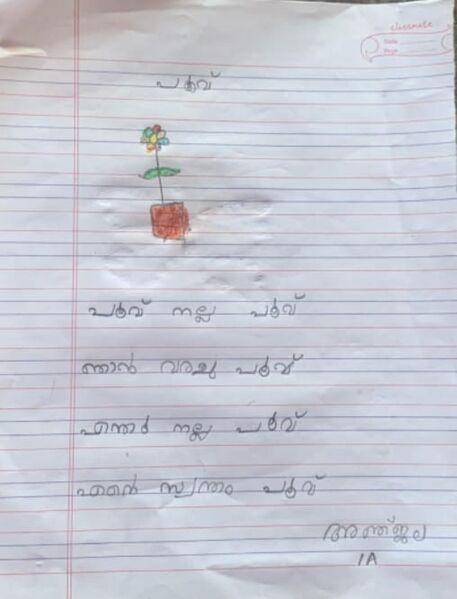 classmate
Date
Page
പൂവ്
പൂവ് നല്ല പൂവ്
ഞാൻ വരച്ച പൂവ്
എന്തൊ നല്ല പൂവ്
എന്റെ സ്വന്തം പൂവ്
1A